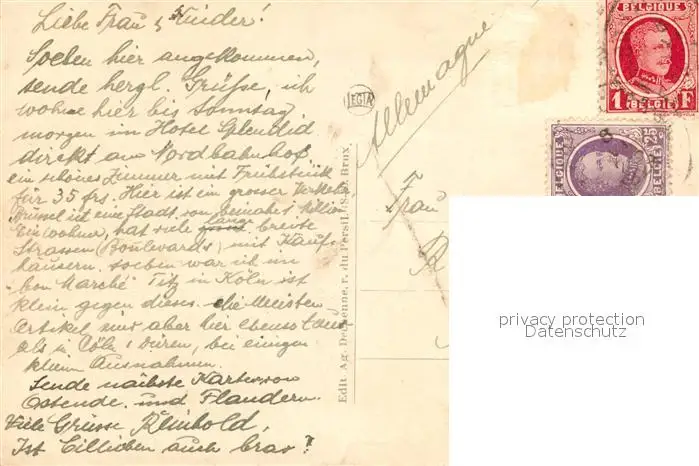 Liebe Frau & Kinder!
Soeben hier angekommen,
sende herzl. Grüsse, ich
wohne hier bis Sonntag
morgen im Hotel Splendid
direkt am Nordbahnhof
ein schönes Zimmer mit Frühstück
für 35 frs. Hier ist ein grosser Verkehr.
Brüssel ist eine Stadt von beinahe 1 Million
Einwohner, hat viele lange breite
Strassen (Boulevards) mit Kauf-
häusern. Soeben war ich im
bon Marché Titz in Köln ist
klein gegen dieses. die Meisten
Artikel sind aber hier ebenso
als in Cöln & Düren, bei einigen
kleinen Ausnahmen.
Sende nächste Karten von
Ostende und Flandern.
Viele Grüsse Reinhold,
Ist Cillichen auch brav?
LEGIA
Edit Ag. r. du Persil, Brux.
Allemagne
Frau
BELGIQUE
1 F
BELGIË
BELGIQUE
25
BELGIË
privacy protection
Datenschutz